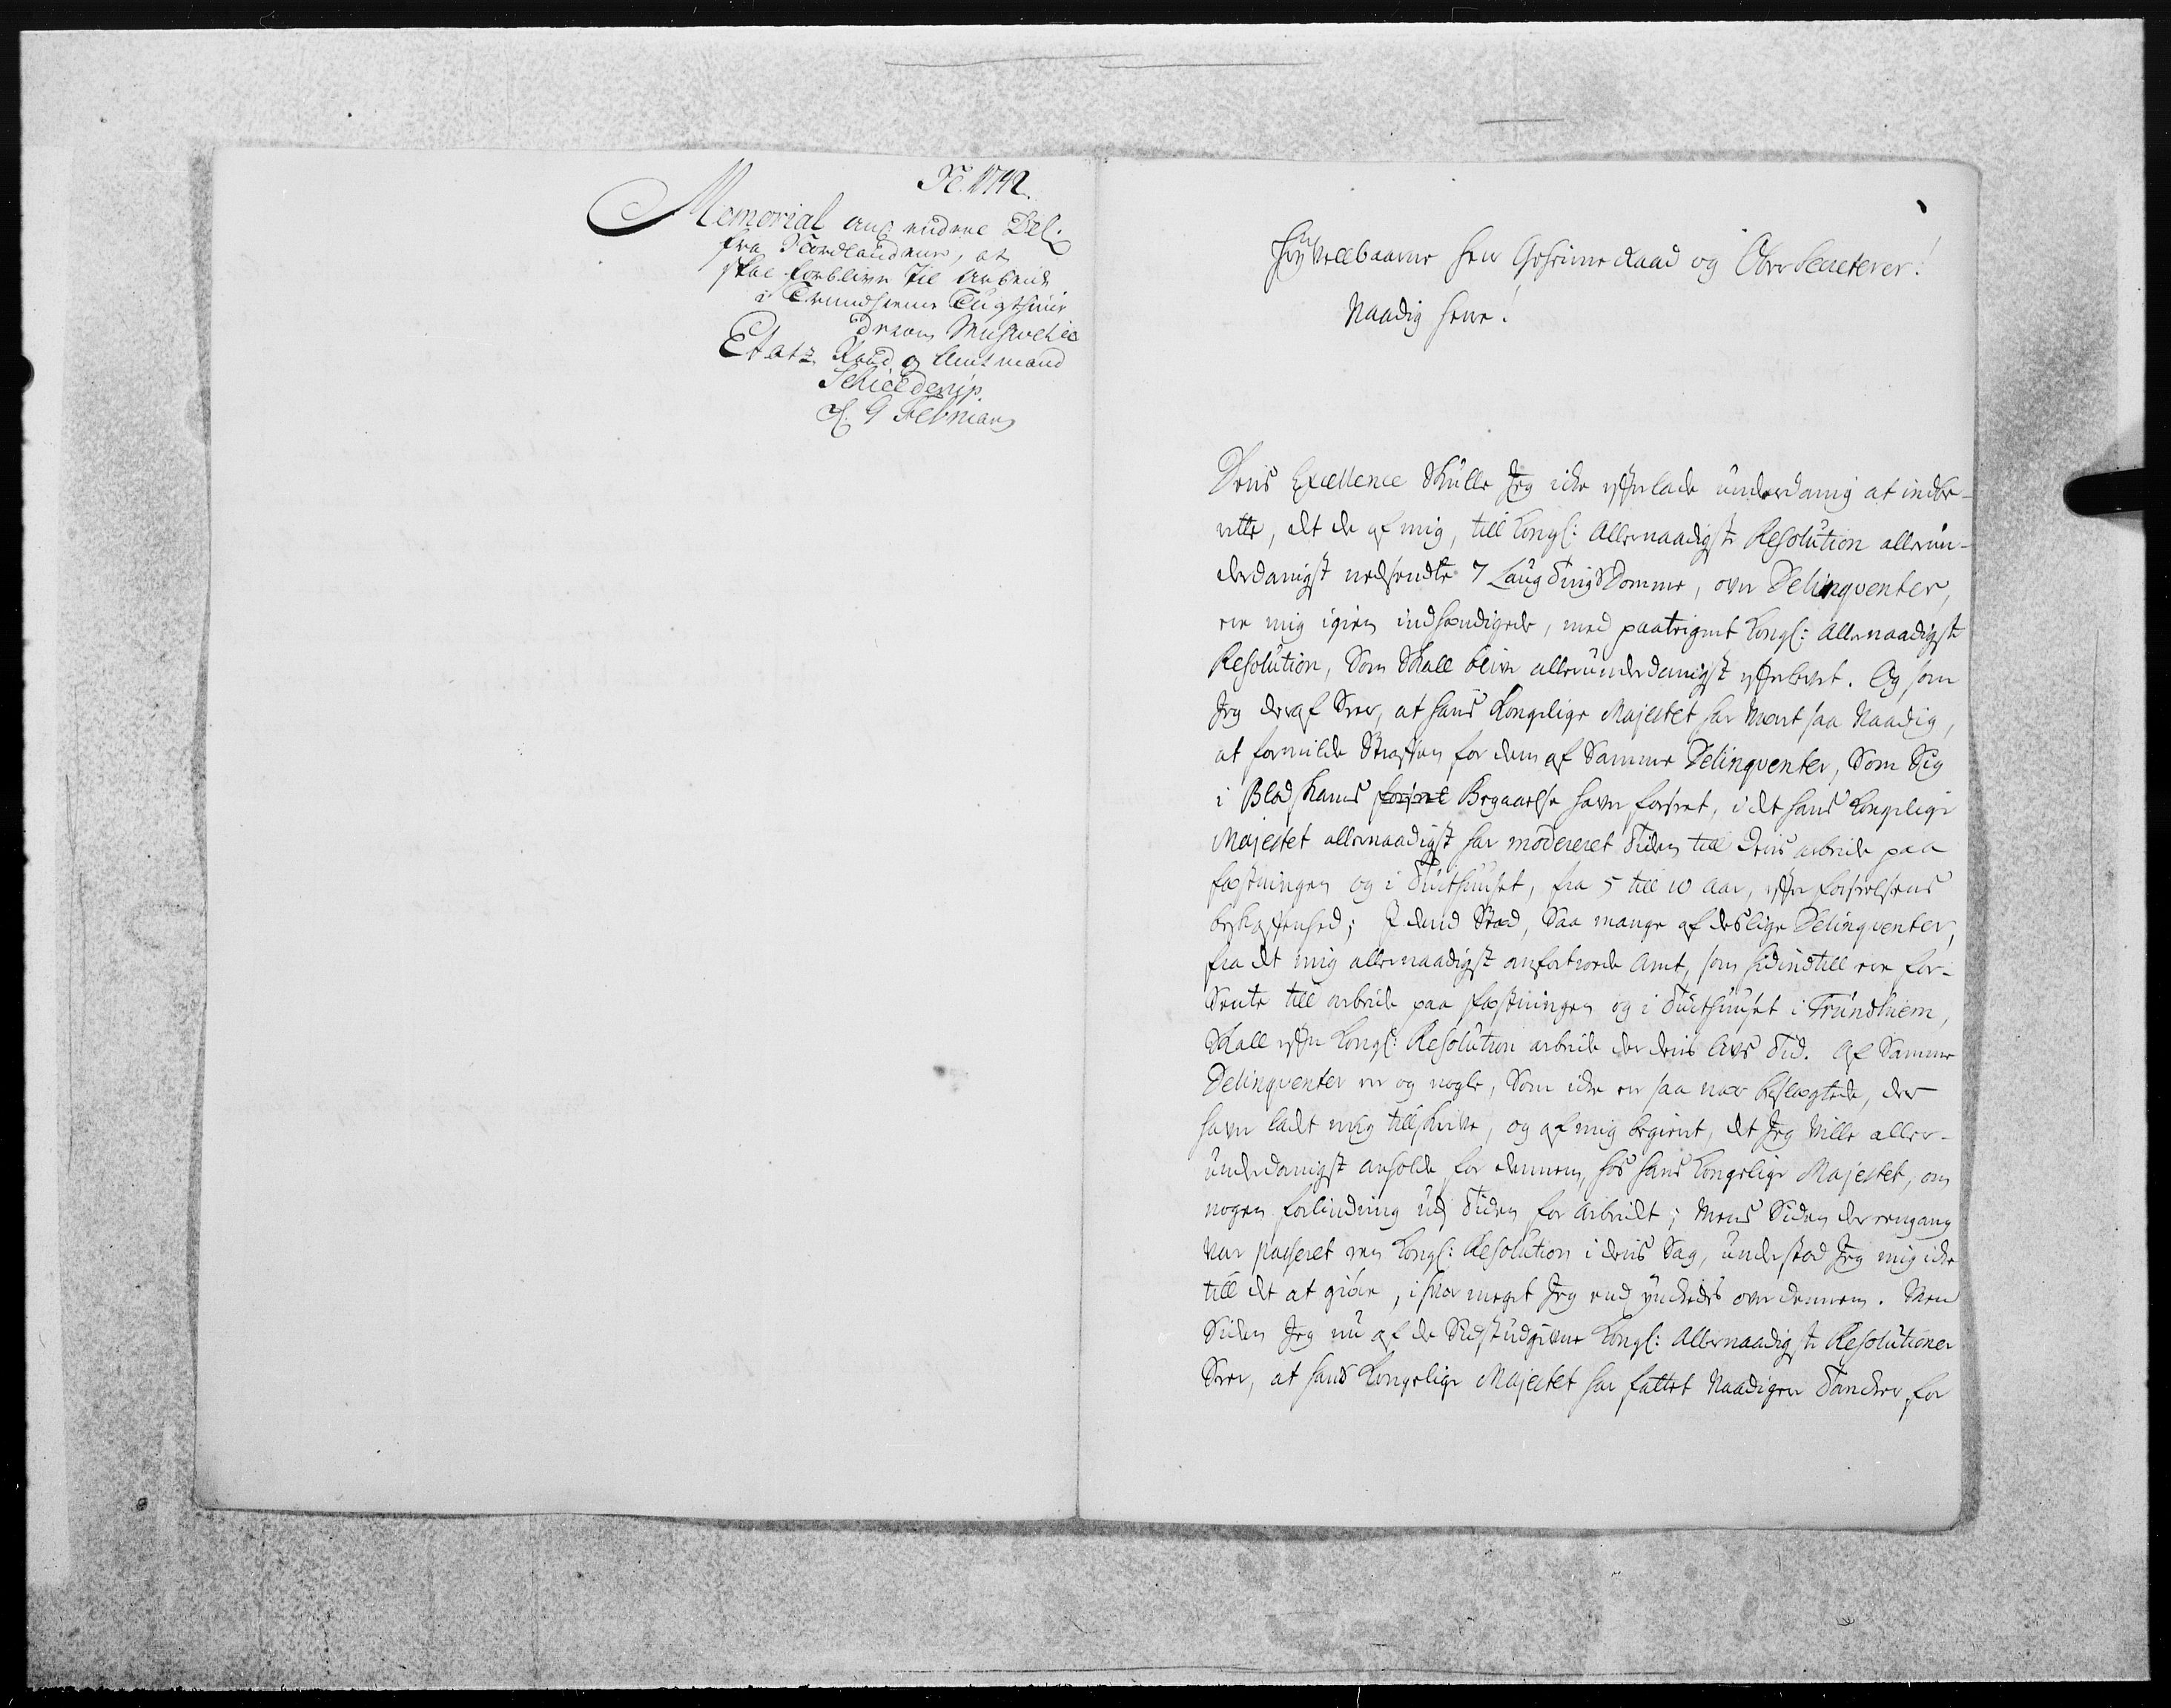 No. 1742.
Memorial ang endeel Del:
fra Nordlandene, at
skal forblive til Arbeide
i Trundhiems Tugthuus
Etatz Raad og Amtmand
Schielderup.
d. 9 Februarj
Høy Velbaarne Herr Geheime Raad og Ober Secreterer!
Naadig Herre!
Deris Excellence skulle Jeg icke efterlade underdanig at indbe-
rette, At de af mig, till Kongl: Allernaadigste Resolution allerun-
derdanigst nedsendte 7 Laugtings Domme, over Delinqventer,
ere mig igien indhændigede, med paategnet Kongl: Allernaadigste
Resolution, Som Skall blive allerunderdanigst efterlevet. Og som
Jeg deraf Seer, at Hans Kongelige Majestet har været saa Naadig,
at formilde Straffen for dem af Samme Delinqventer, Som Sig
i Blodskams Begaaelse haver forseet, i det Hans Kongelige
Majestet allernaadigst har modereret Tiden till deris arbeide paa
fæstningen og i Tucthuuset, fra 5 till 10 Aar, efter forseelsens
beskaffenhed; I dend Sted, Saa mange af deslige Delinqventer,
fra det mig allernaadigst anfortroede Amt, som hidindtill ere for-
Sente till arbeide paa fæstningen og i Tucthuuset i Trundhiem,
Skall efter Kongl: Resolution arbeide der deris Livs Tid. Af Samme
Delinqventer er og nogle, Som icke er saa nær beslægtede, der
haver ladt mig tillskrive, og af mig begieret, at Jeg Ville aller-
underdanigst anholde for dennem, hos Hans Kongelige Majestet, om
nogen forlindring udj Tiden for Arbeidet; Mens Siden der eengang
var passeret een Kongl: Resolution i deris Sag, understod Jeg mig icke
till det at giøre, i hvor meget Jeg end ynckedes over dennem. Men
Siden Jeg nu af de Sidstudgivne Kongl: Allernaadigste Resolutioner
Seer, at Hans Kongelige Majestet har fattet Naadigere Tancker for